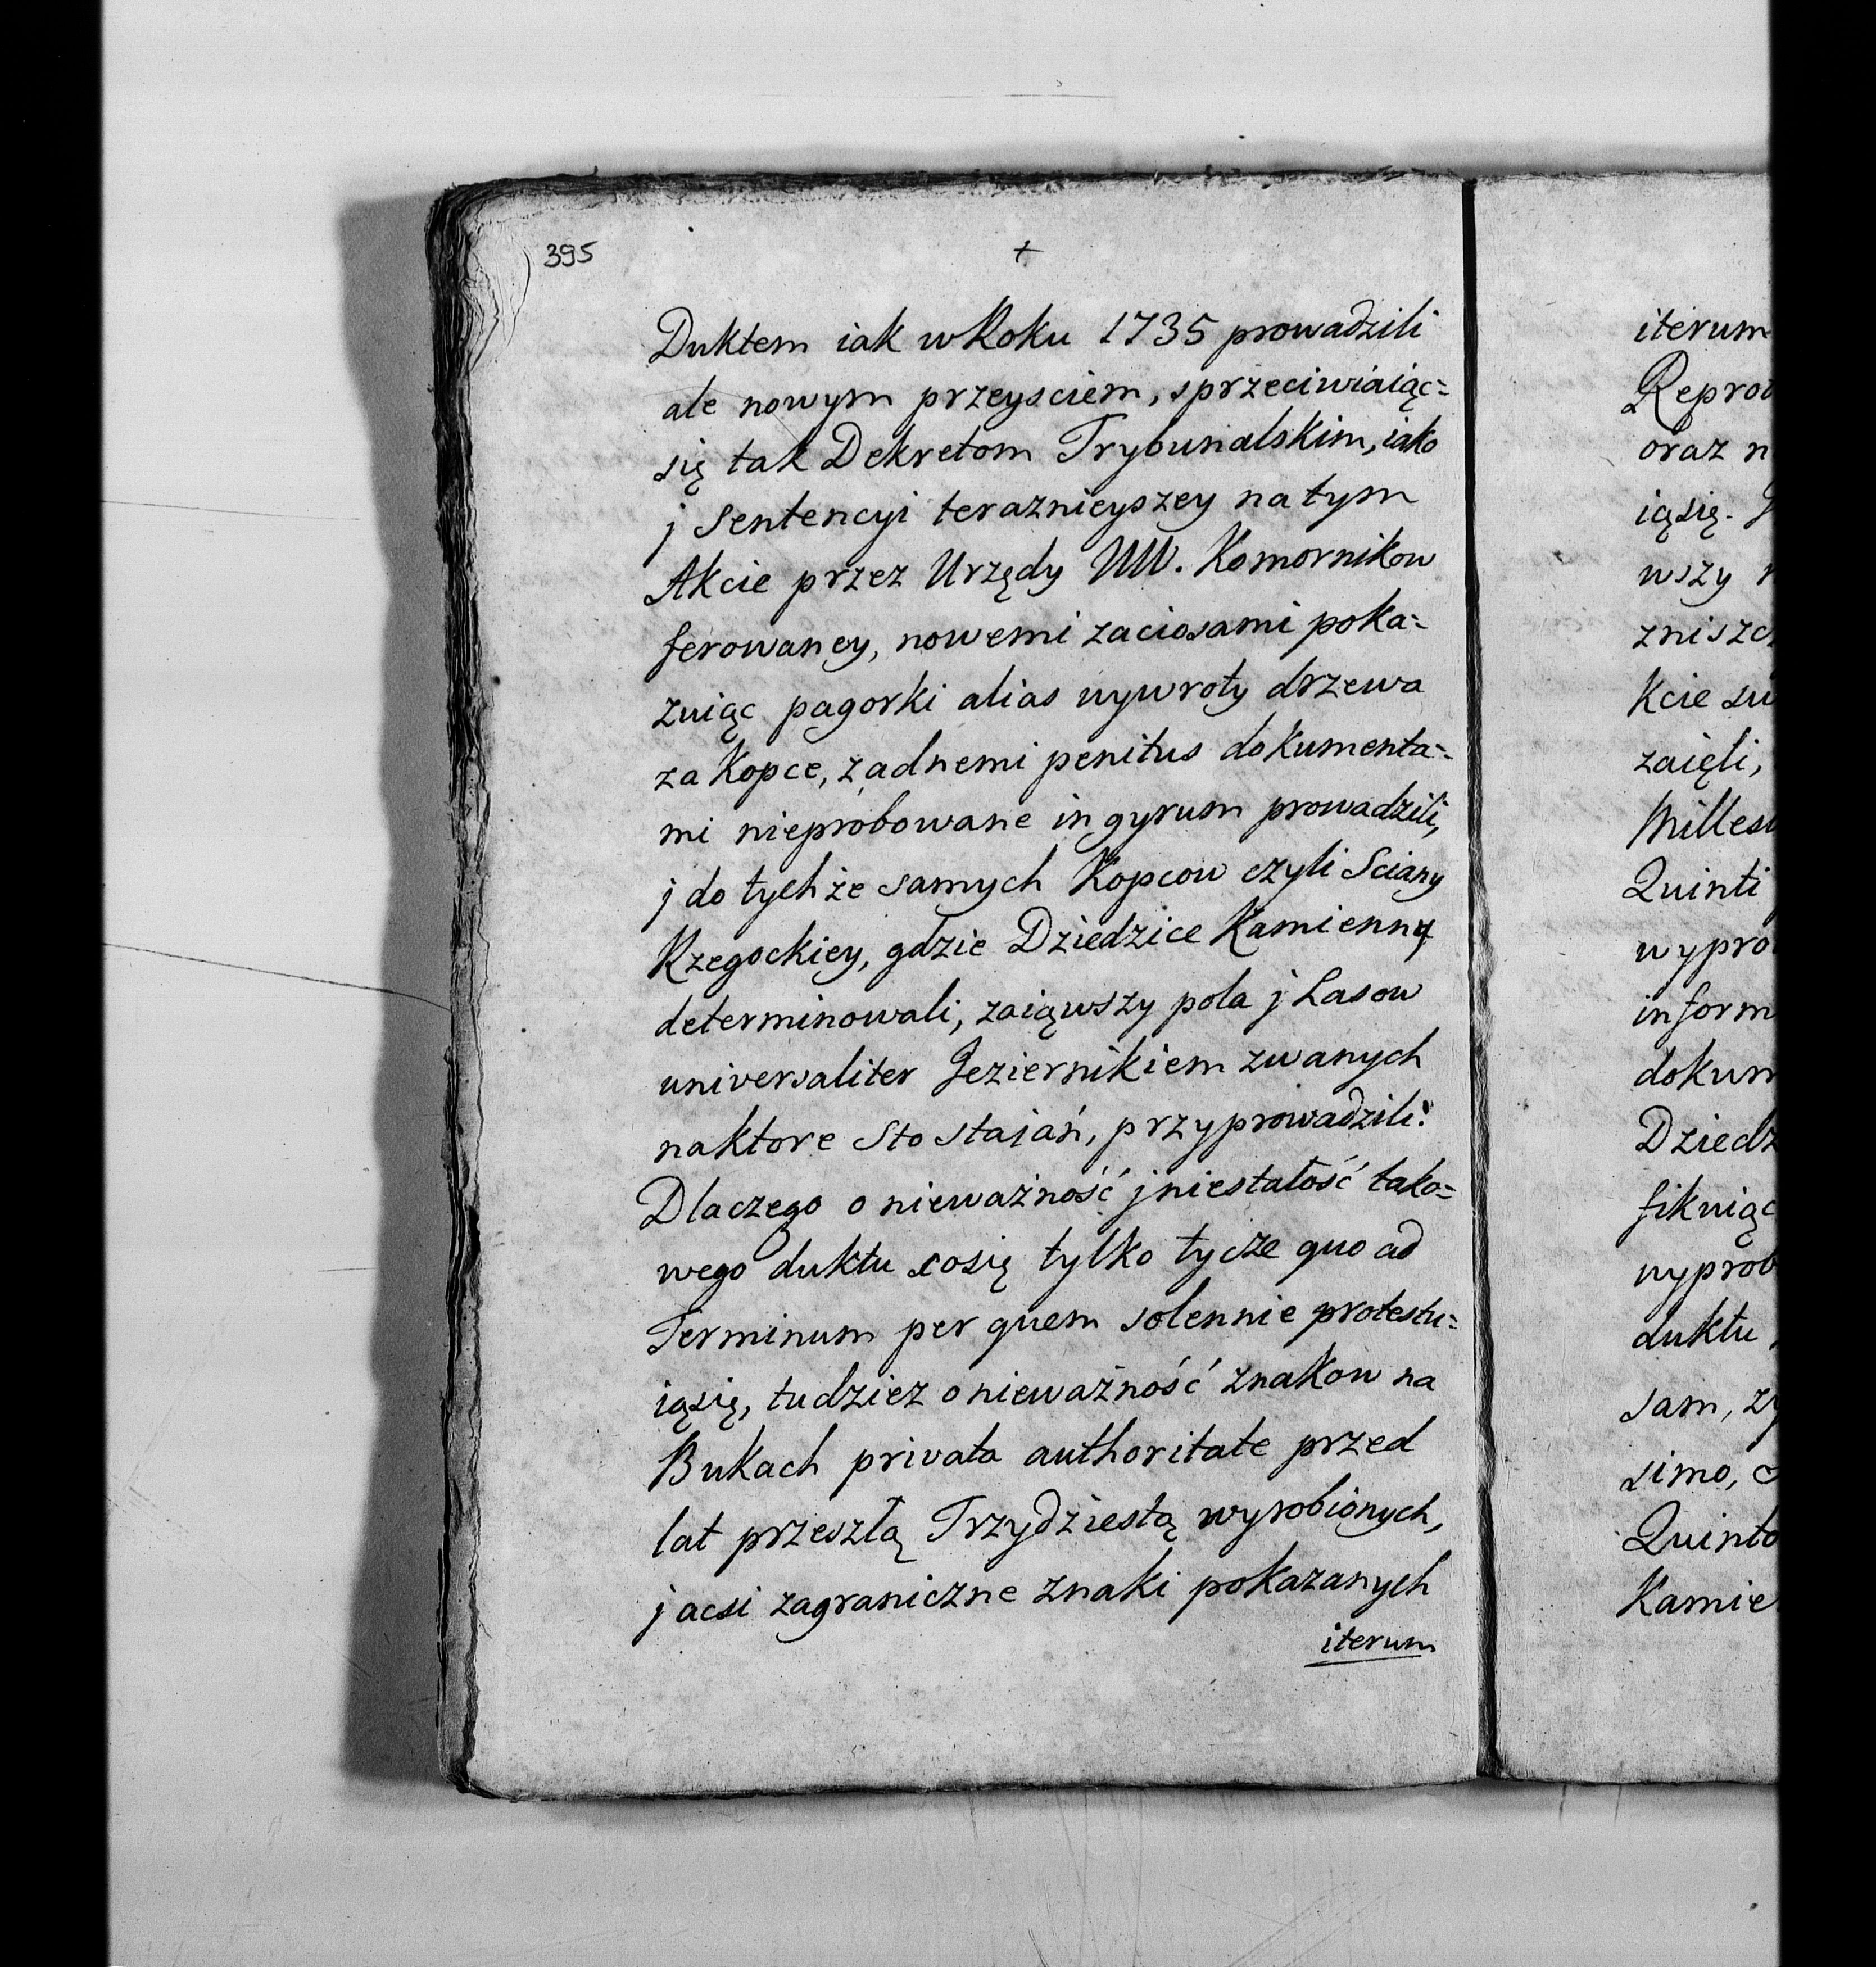 395
+
Duktem iak wRoku 1735 prowadzili
ale nowym przeysciem, sprzeciwiaiąc=
się tak Dekretom Trybunalskim, iako
j Sentencyi teraznieyszey na tym
Akcie przez Urzędy WW. Komornikow
ferowaney, nowemi zaciosami poka=
zuiąc pagorki alias wywroty drzewa
za Kopce, żadnemi penitus dokumenta=
mi nieprobowane in gyrum prowadzili,
j do tychże samych Kopcow czyli Sciany
Rzegockiey, gdzie Dziedzice Kamienny
determinowali, zaiąwszy pola j Lasow
universaliter Jeziernikiem zwanych
naktore Sto staiań, przyprowadzili:
Dlaczego o nieważność j niestałość tako=
wego duktu cosię tylko tycze quo ad
Terminum per quem solennie protestu=
iąsię, tudziez o nieważność znakow na
Bukach privata authoritate przed
lat przeszłą Trzydziestą wyrobionych,
j acsi zagraniczne znaki pokazanych
iterum
iterum
oraz n
iąsię.
wszy
zaięli,
Quinti
dokum
duktu
sam,
simo,
Quinto
Kamie